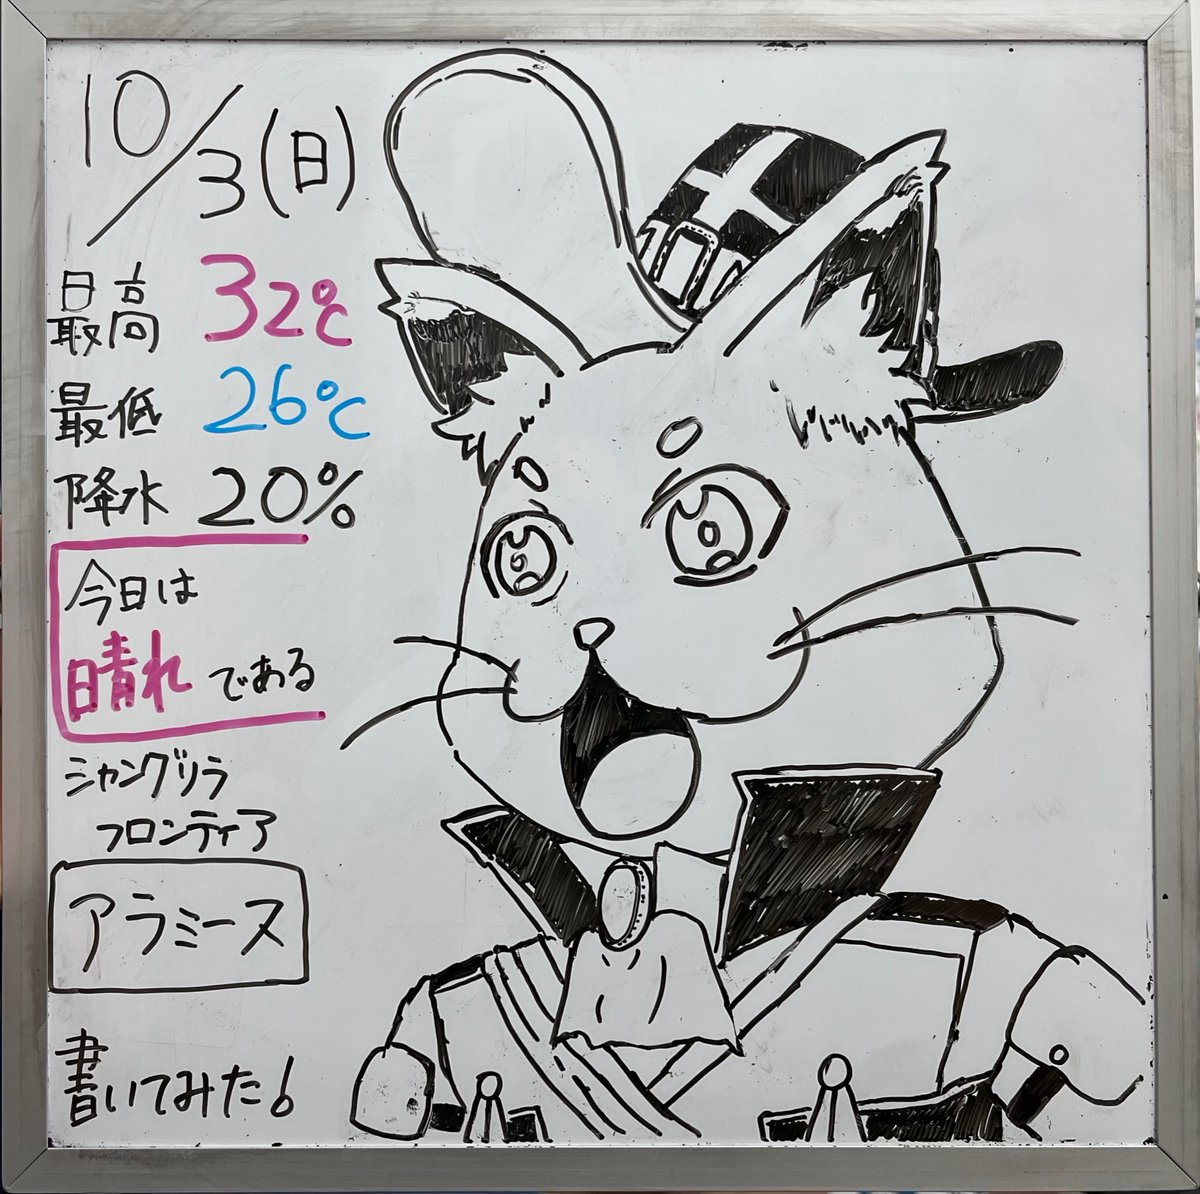 10/3(日)
最高 32℃
最低 26℃
降水 20%
今日は
晴れである
シャングリラ
フロンティア
アラミース
書いてみた!